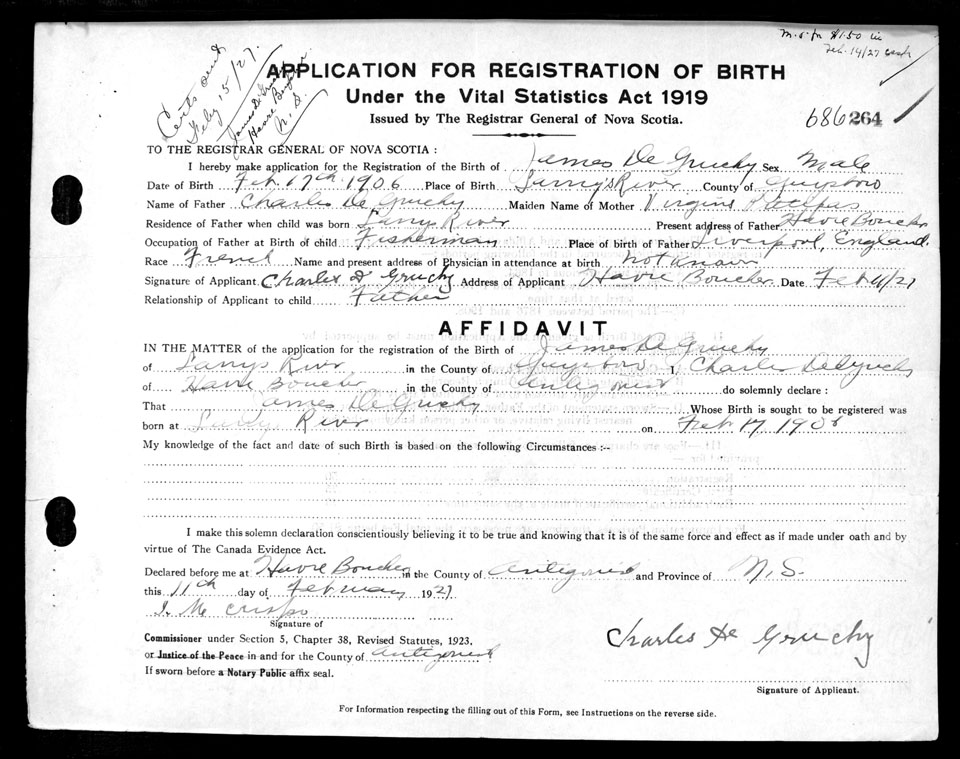 M.O. for $1.50 in
Feb. 14/27 cash
Certs sent
Feby 15/27.
James De Gruchy
Havre Boucher
N. S.
APPLICATION FOR REGISTRATION OF BIRTH
Under the Vital Statistics Act 1919
Issued by The Registrar General of Nova Scotia.
686 264
TO THE REGISTRAR GENERAL OF NOVA SCOTIA :
I hereby make application for the Registration of the Birth of James De Gruchy Sex Male
Date of Birth Feb. 17th 1906 Place of Birth Larry's River County of Guysboro
Name of Father Charles De Gruchy Maiden Name of Mother Virginia
Residence of Father when child was born Larry River Present address of Father Havre Boucher
Occupation of Father at Birth of child Fisherman Place of birth of Father Liverpool, England.
Race French Name and present address of Physician in attendance at birth not known
Signature of Applicant Charles D Gruchy Address of Applicant Havre Boucher Date Feb 11/27
Relationship of Applicant to child Father
AFFIDAVIT
IN THE MATTER of the application for the registration of the Birth of James De Gruchy
of Larrys River in the County of Guysboro I, Charles De Gruchy
of Havre Boucher in the County of Antigonish do solemnly declare :
That James De Gruchy Whose Birth is sought to be registered was
born at Larry River on Feb 17 1906
My knowledge of the fact and date of such Birth is based on the following Circumstances :--
I make this solemn declaration conscientiously believing it to be true and knowing that it is of the same force and effect as if made under oath and by
virtue of The Canada Evidence Act.
Declared before me at Havre Boucher in the County of Antigonish and Province of N.S.
this 11th day of February 1927
J. M Crispo
Signature of
Commissioner under Section 5, Chapter 38, Revised Statutes, 1923.
or Justice of the Peace in and for the County of Antigonish
If sworn before a Notary Public affix seal.
Charles De Gruchy
Signature of Applicant.
For Information respecting the filling out of this Form, see Instructions on the reverse side.